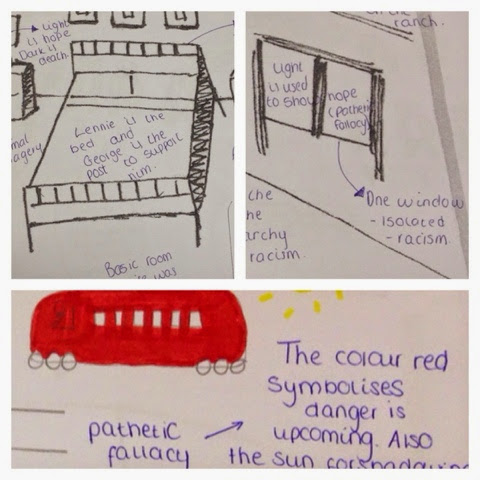 Light
is hope
Dark is
death.
Lennie is the
bed and
George is the
post to support
him.
Basic room
was
ranch.
Light
is used
to show
hope
(pathetic
fallacy)
One window
- isolated
- racism.
racism.
The colour red
symbolises
danger is
upcoming. Also
the sun
pathetic
fallacy